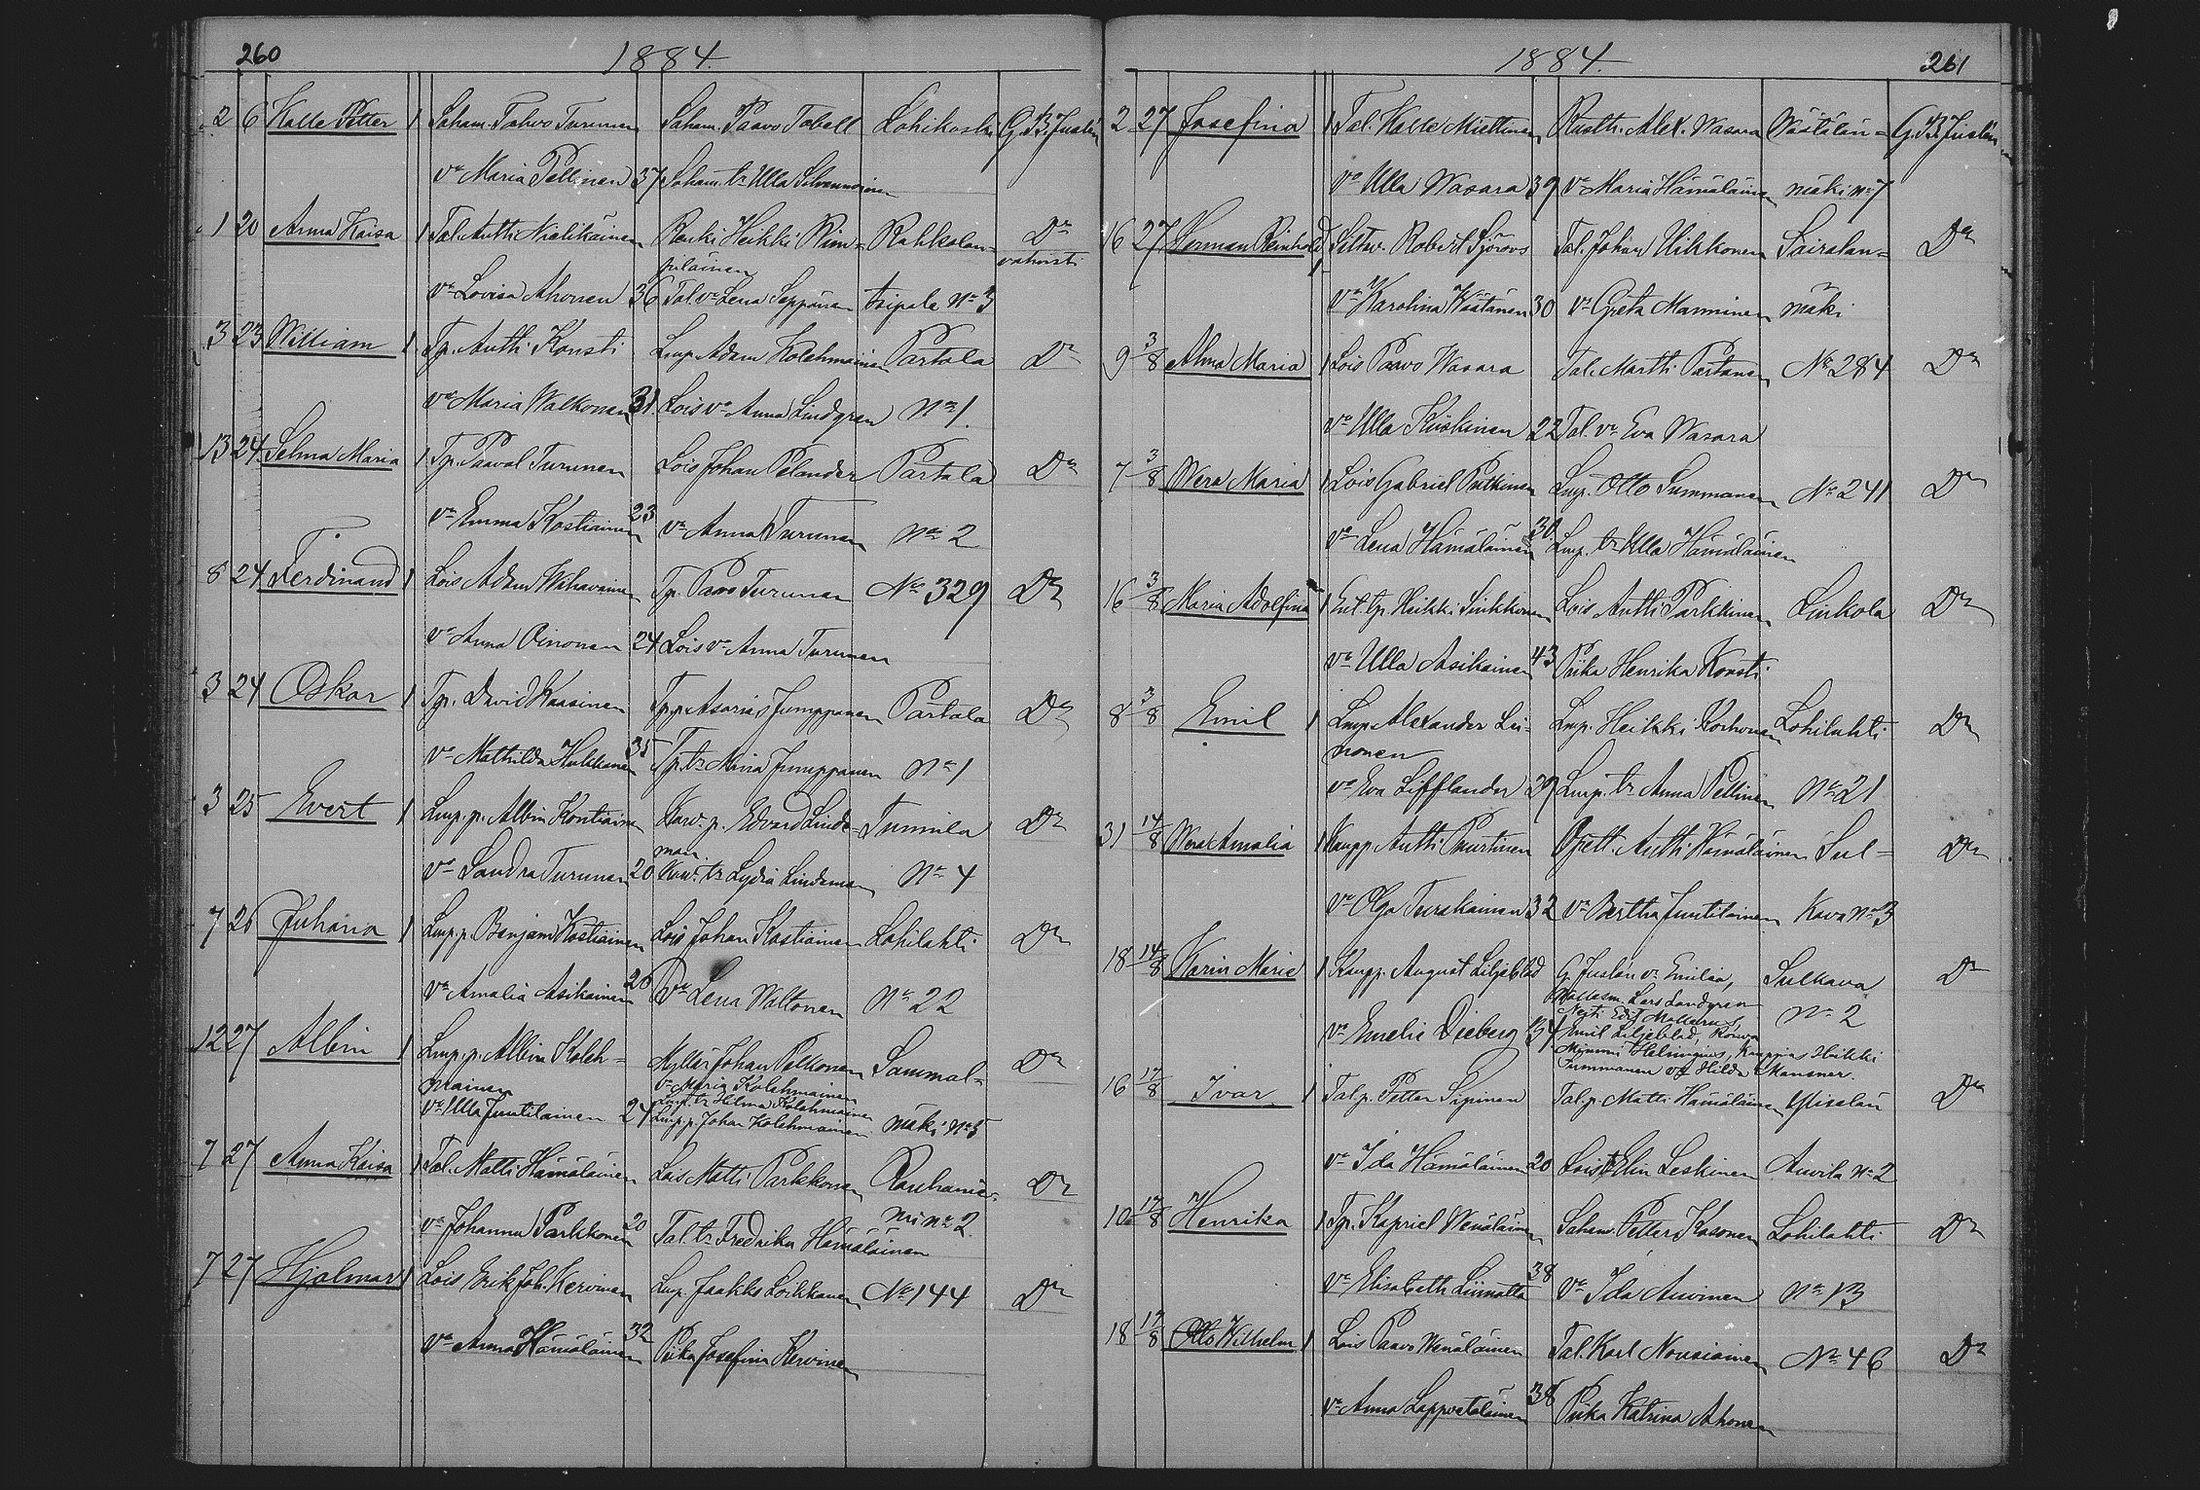 260 1884.
2 6 Kalle Petter 1 Saham. Tahvo Turunen Saham. Paavo Tabell Lohikoski G. B. Juslén
va Maria Pellinen 37 Saham. tr Ulla Silvennoinen
1 20 Anna Kaisa 1 Tal. Antti Nielikäinen Renki Heikki Rim= Rahkolan= Do
piläinen vahvisti
va Lovisa Ahonen 36 Tal. va Lena Seppänen No 3
3 23 William 1 Tp. Antti Konsti Lmp. Adam Kolehmainen Partala Do
va Maria Walkonen 31 Lois va Anna Lindgren No 1.
13 24 Selma Maria 1 Tp. Paaval Turunen Lois Johan Pelander Partala Do
va Emma Kostiainen 23 va Anna Turunen No 2
8 24 Ferdinand 1 Lois Adam Wihavainen Tp. Paavo Turunen No 329 Do
va Anna Oinonen 24 Lois va Anna Turunen
3 24 Oskar 1 Tp. David Kaasinen Tp. p. Asarias Jumppanen Partala Do
va Mathilda Hukkanen 35 Tp. tr Miina Jumppanen No 1
3 25 Evert 1 Lmp. p. Albin Kontiainen Karv. p. Edvard Linde= Tumila Do
man
va Sandra Turunen 20 Karv. tr Lydia Lindeman No 4
7 26 Juhana 1 Lmp. p. Benjam Kostiainen Lois Johan Kostiainen Lohilahti Do
va Amalia Asikainen 26 va Lena Waltonen No 22
12 27 Albin 1 Lmp. p. Albin Koleh= Johan Pelkonen Sammal= Do
mainen va Maria Kolehmainen
Lmp. tr Helena Kolehmainen
va Ulla Juutilainen 24 Lmp. p. Johan Kolehmainen mäki No 5
7 27 Anna Kaisa 1 Tal. Matti Hämäläinen Lois Matti Parkkonen Do
va Johanna Parkkonen 20 Tal. tr Fredrika Hämäläinen No 2
7 27 Hjalmar 1 Lois Erik Joh. Kervinen Lmp. Jaakko Loikkanen No 144 Do
va Anna Hämäläinen 32 Piika Josefina Kervinen
1884. 261
2 27 Josefina 1 Tal. Kalle Miettinen Rustt. Alex. Wasara Väätälän= G. B. Juslén
va Ulla Wasara 39 va Maria Hämäläinen mäki No 7
16 27 Herman Reinhold 1 Robert Sjöroos Tal. Johan Uikkonen Sairalan= Do
va Karolina Väätänen 30 va Greta Manninen mäki
9 3/8 Alma Maria 1 Lois Paavo Wasara Tal. Martti Partanen No 284 Do
va Ulla Kiiskinen 22 Tal. va Eva Wasara
7 3/8 Wera Maria 1 Lois Gabriel Putkinen Lmp. Otto Summanen No 241 Do
va Lena Hämäläinen 30 Lmp. tr Ulla Hämäläinen
16 3/8 Maria Adolfina 1 Ent. tp. Heikki Sinkkonen Lois Antti Parkkinen Linkola Do
va Ulla Asikainen 43 Piika Henrika Konsti
8 3/8 Emil 1 Lmp. Alexander Lii= Lmp. Heikki Korhonen Lohilahti Do
nonen
va Eva Lifflander 29 Lmp. tr Anna Pellinen No 21
31 14/8 Wera Amalia 1 Kaupp. Antti Puurtinen Opett. Antti Hämäläinen Sul= Do
va Olga Turskainen 32 va Bertha Juutilainen Kava No 3
18 14/8 Karin Maria 1 Kaupp. August Liljeblad G. Juslén va Emilia, Sulkava Do
Lars Landgren
va Emelie Dieberg 34 No 2
Emil Liljeblad, Rouva
Mimmi Helsingius, Kauppias Heikki
Summanen va Hilda Mansner.
16 17/8 Ivar 1 Tal. p. Petter Sipinen Tal. p. Matti Hämäläinen Do
va Ida Hämäläinen 20 Lois tr Elin Leskinen Auvila No 2
10 17/8 Henrika 1 Tp. Kapriel Wenäläinen Saham. Petter Kosonen Lohilahti Do
va Elisabeth Liimatta 38 va Ida Auvinen No 13
18 17/8 Otto Wilhelm 1 Lois Paavo Wenäläinen Tal. Karl Nousiainen No 46 Do
va Anna Lappvetelainen 38 Piika Katrina Ahonen